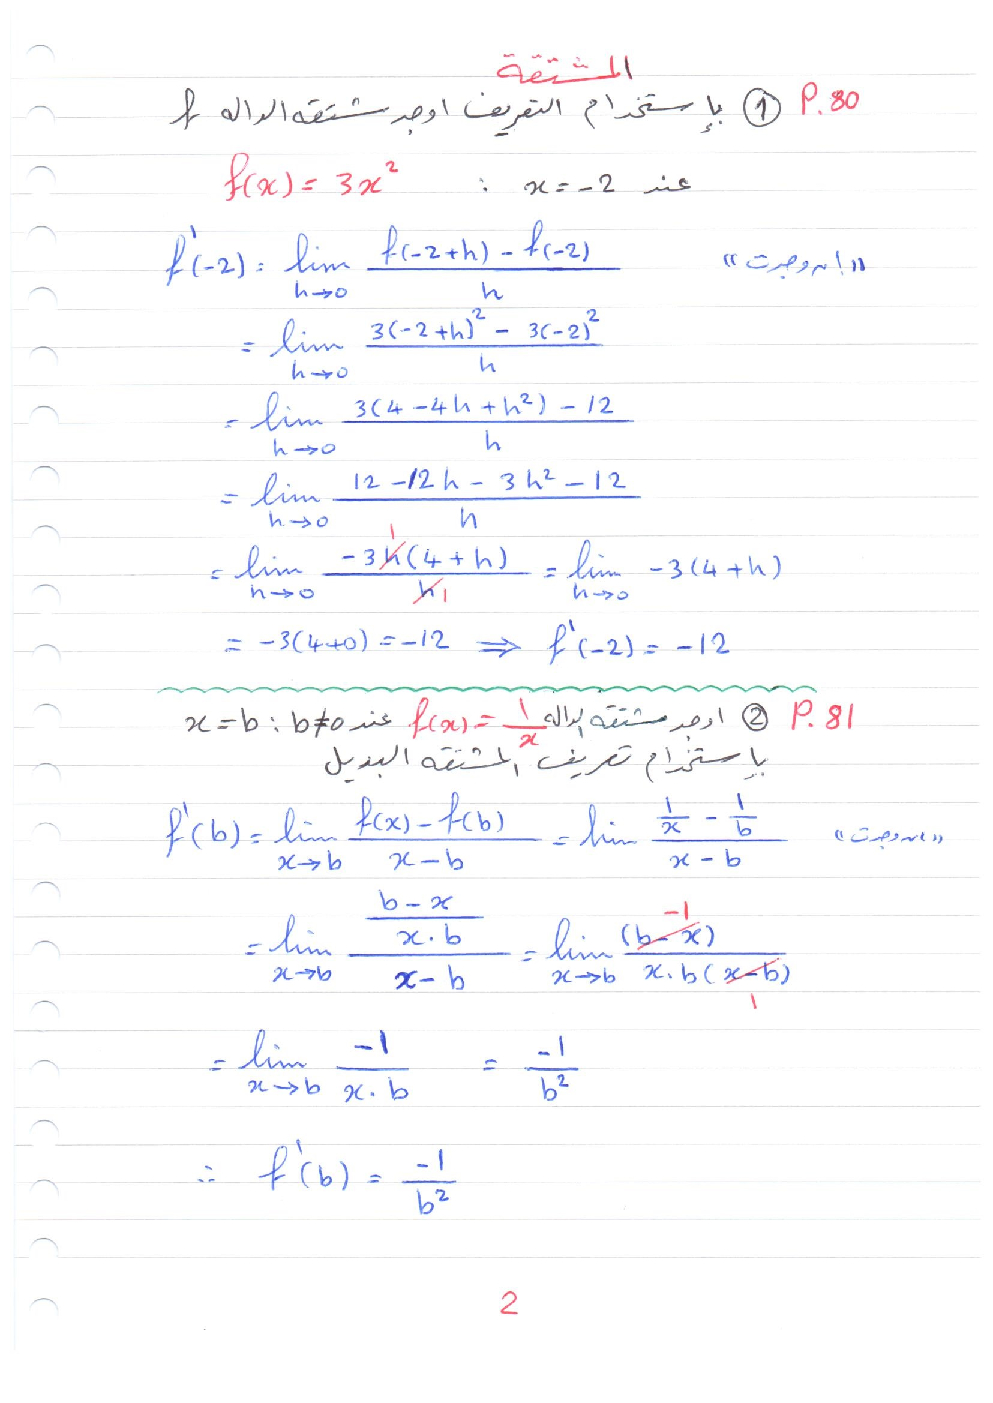 المشتقة
P.80 ① بإستخدام التعريف اوجد مشتقه الداله f
f(x) = 3x² : x = -2 عند
f'(-2) = lim h→0 (f(-2+h) - f(-2)) / h "إن وجدت"
= lim h→0 (3(-2+h)² - 3(-2)²) / h
= lim h→0 (3(4-4h+h²) - 12) / h
= lim h→0 (12 - 12h - 3h² - 12) / h
= lim h→0 (-3h(4+h)) / h = lim h→0 -3(4+h)
= -3(4+0) = -12 ⇒ f'(-2) = -12
P.81 ② اوجد مشتقه الداله f(x) = 1/x عند x = b : b≠0
بإستخدام تعريف المشتقه البديل
f'(b) = lim x→b (f(x) - f(b)) / (x - b) = lim (1/x - 1/b) / (x - b) "إن وجدت"
= lim x→b ((b - x) / (x . b)) / (x - b) = lim x→b (b - x) -1 / (x . b (x - b) 1)
= lim x→b -1 / (x . b) = -1 / b²
∴ f'(b) = -1 / b²
2